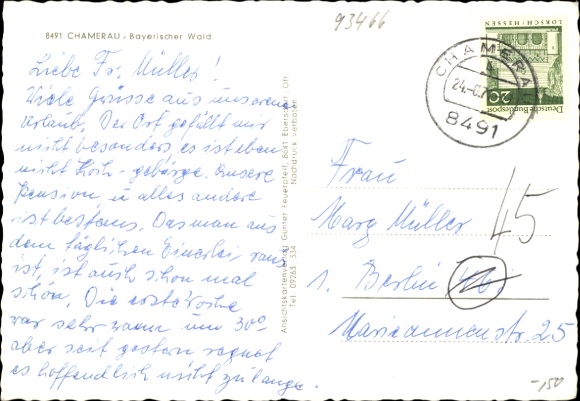 93466
8491 CHAMERAU - Bayerischer Wald
Liebe Fr. Müller!
Viele Grüsse aus unserem
Urlaub. Der Ort gefällt mir
nicht besonders, es ist eben
nicht Hoch-gebirge. Unsere
Pension, u alles andere
ist bestens. Das man aus
dem täglichen Einerlei raus
ist, ist auch schon mal
schön. Die erste Woche
war sehr warm um 30°
aber seit gestern regnet
es hoffentlich nicht zu lange.
Ansichtskartenverlag Günter Feuerpfeil, 8641 Eberscher Ofr.
Tel. 09263 - 334 Nachdruck verboten
CHAMERA
24.
8491
LORSCH/HESSEN
Deutsche Bundespost
20
Frau
Marg Müller
1. Berlin
45
Mariannenstr. 25
-150